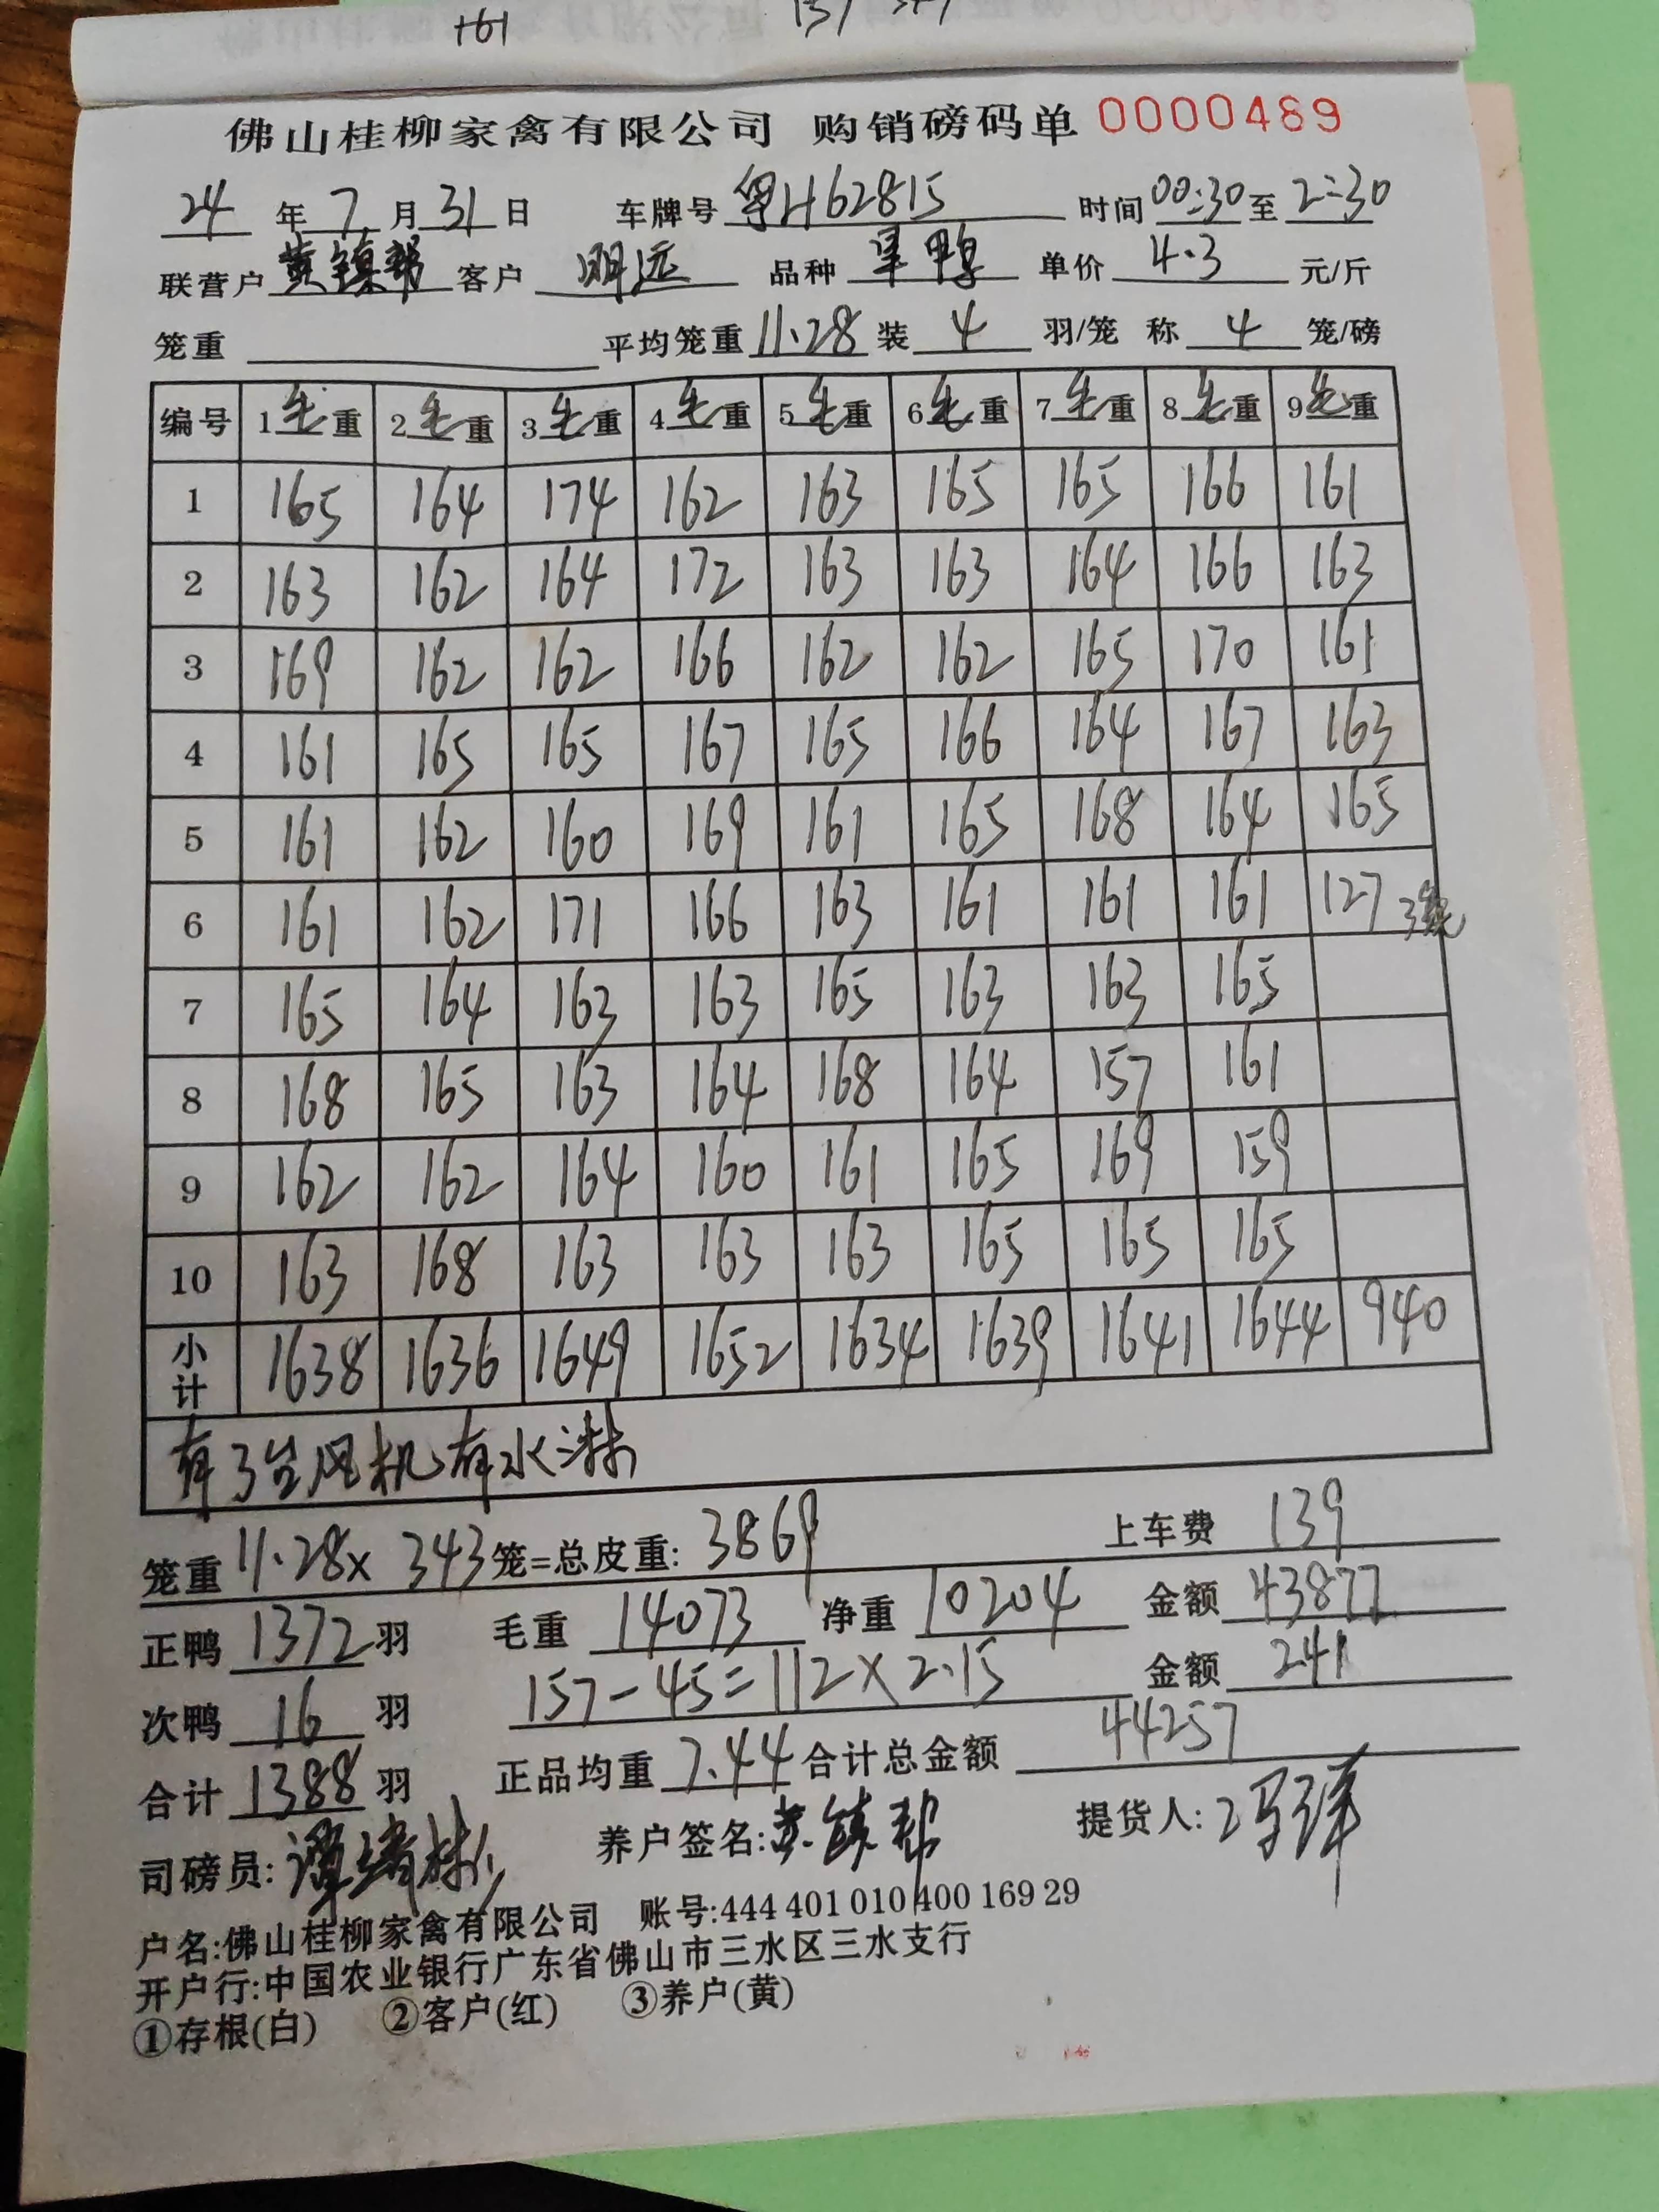 161
佛山桂柳家禽有限公司 购销磅码单 0000489
24 年 7 月 31 日 车牌号 粤H62815 时间 00:30 至 2:30
联营户 黄镇帮 客户 明远 品种 旱鸭 单价 4.3 元/斤
笼重 平均笼重 11.28 装 4 羽/笼 称 4 笼/磅
编号 1毛重 2毛重 3毛重 4毛重 5毛重 6毛重 7毛重 8毛重 9毛重
1 165 164 174 162 163 165 165 166 161
2 163 162 164 172 163 163 164 166 163
3 169 162 162 166 162 162 165 170 161
4 161 165 165 167 165 166 164 167 163
5 161 162 160 169 161 165 168 164 165
6 161 162 171 166 163 161 161 161 127 3笼
7 165 164 163 163 165 163 163 165
8 168 165 163 164 168 164 157 161
9 162 162 164 160 161 165 169 159
10 163 168 163 163 163 165 165 165
小计 1638 1636 1649 1652 1634 1639 1641 1644 940
有3台风机有水淋
笼重 11.28× 343 笼=总皮重: 3869 上车费 139
正鸭 1372 羽 毛重 14073 净重 10204 金额 43877
次鸭 16 羽 157-45=112×2.15 金额 241
合计 1388 羽 正品均重 7.44 合计总金额 44257
司磅员: 养户签名: 黄镇帮 提货人:
户名:佛山桂柳家禽有限公司 账号:444 401 010 400 169 29
开户行:中国农业银行广东省佛山市三水区三水支行
①存根(白) ②客户(红) ③养户(黄)